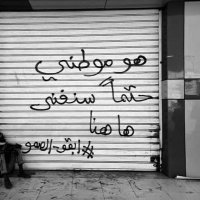 هو موطني
حتماً سنفنى
ها هنا